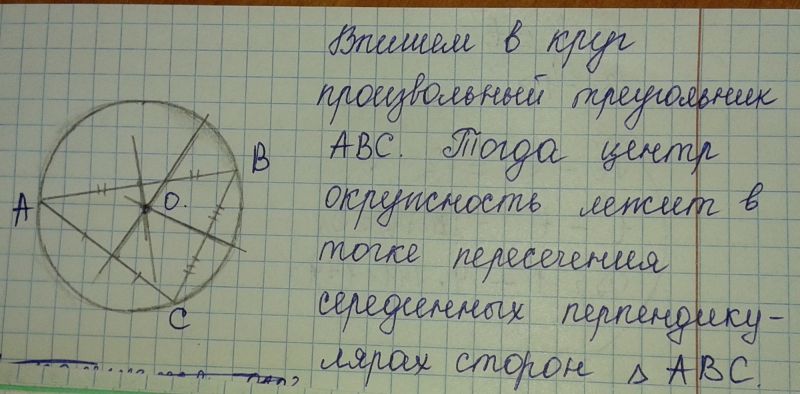 Впишем в круг
произвольный треугольник
ABC. Тогда центр
окружность лежит в
точке пересечения
серединных перпендику-
лярах сторон △ ABC.
A
B
O.
C